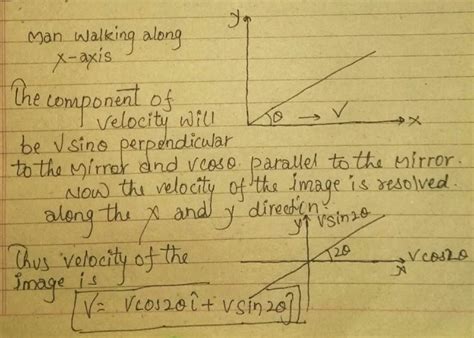 Man Walking along
x-axis
y
θ → V
x
The component of
velocity will
be Vsinθ perpendicular
to the Mirror and vcosθ parallel to the Mirror.
Now the velocity of the image is resolved
along the x and y direction.
y Vsin2θ
2θ
x Vcos2θ
Thus velocity of the
image is
V = Vcos2θî + Vsin2θĵ